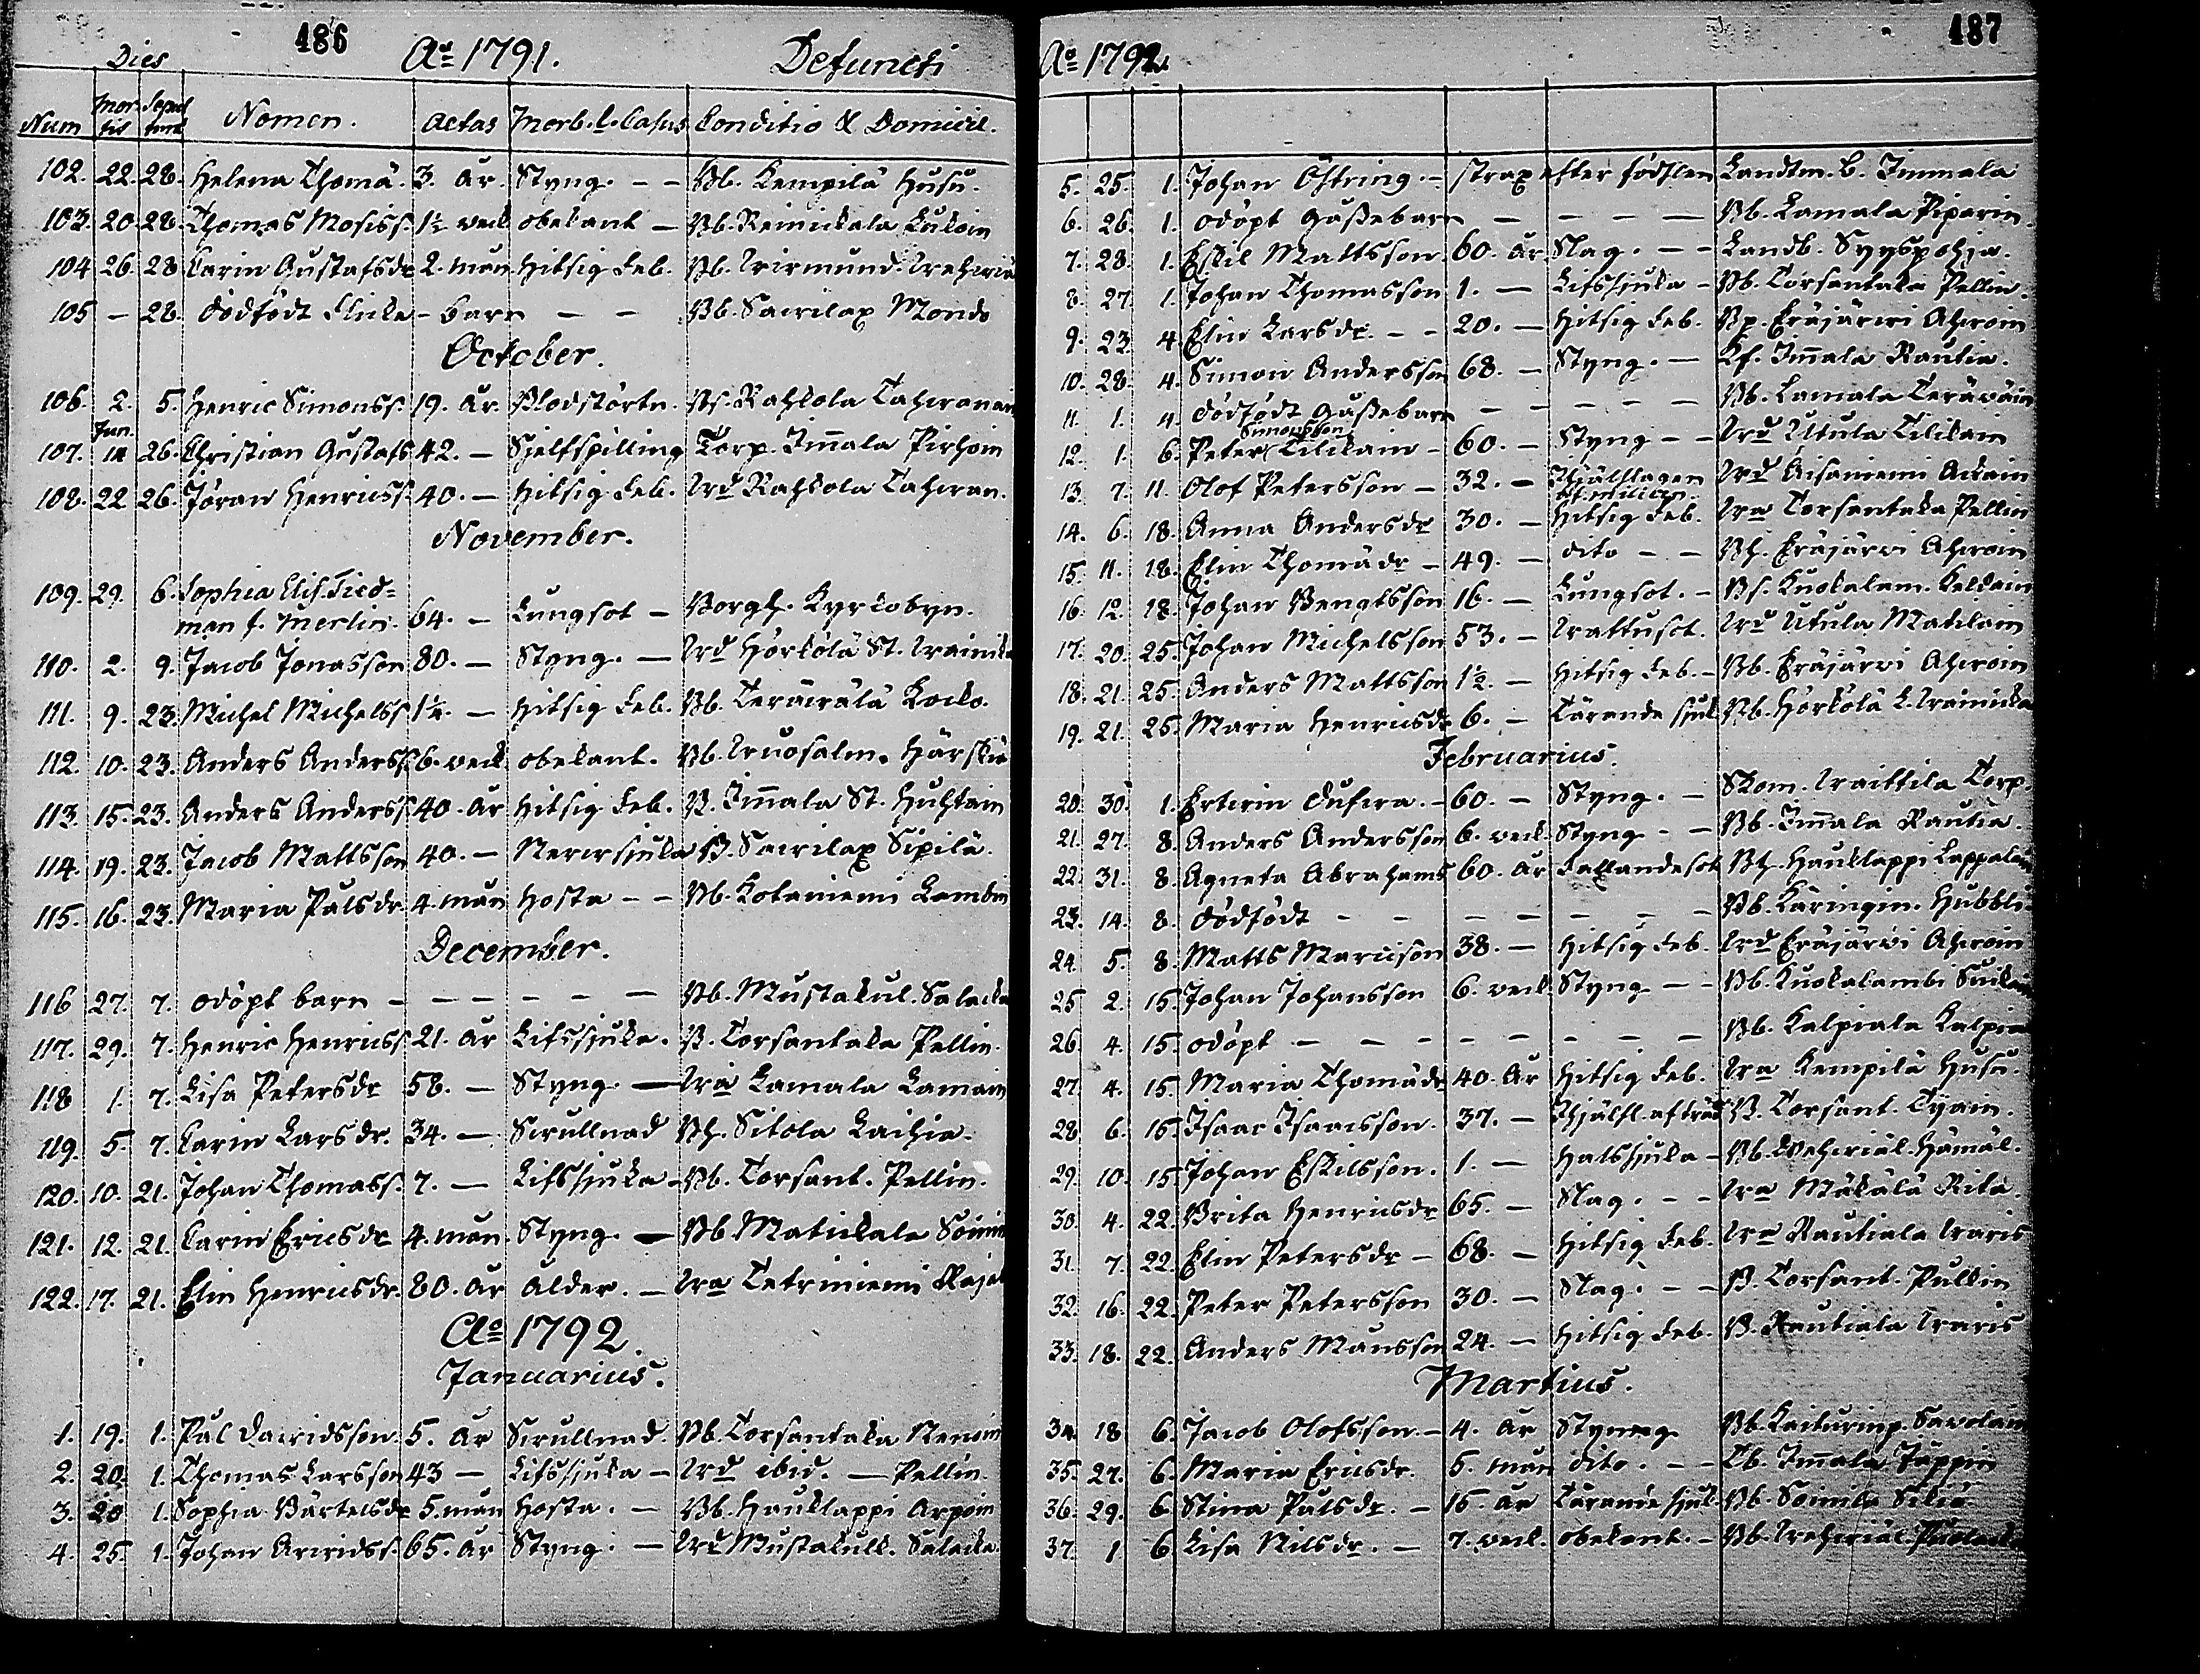 486
Dies Ao 1791. Defuncti
Num Mortis Sepulturae Nomen. Aetas Morb. l. Casus Conditio & Domicil.
102. 22. 28. Helena Thomæ. 3. år. Styng. - - Bb. Kempilä Husu.
103. 20. 28. Thomas Mosiss. 1½ veck obekant - Bb. Reinickala Kukoin
104 26. 28 Carin Gustafsdr 2. mån. Hitsig feb.
105 - 28. dödfödt flicke-barn - - Bb. Savilax Mondo
October.
106. 2. 5. Henric Simonss. 19. år. Blodstörtn. Bs. Rahkola Tahvanain
Jun.
107. 14 26. Christian Gustafs 42. - Sjelfspilling Torp. Im̄ala Pirhoin
108. 22 26. Jöran Henricss. 40. - Hitsig feb. Vrd Rahkola Tahvan.
November.
109. 29. 6. Sophia Elis. Tiedman f. Merlin. 64. - Lungsot - Borgh. Kyrkobyn.
110. 2. 9. Jacob Jonasson 80. - Styng. - Vrd Hörkölä St. Vainika
111. 9. 23. Michel Michelss. 1½. - Hitsig feb. Bb. Teräwälä Kocko.
112. 10. 23. Anders Anderss. 6. veck obekant. Bb. Vuosalm. Härskiä
113. 15. 23. Anders Anderss. 40. år Hitsig feb. B. Im̄ala St. Huhtain
114. 19. 23. Jacob Mattsson 40. - Nervsjuka B. Savilax Sipilä.
115. 16. 23. Maria Pålsdr. 4. mån Hosta - - Bb. Kotaniemi Lambin
December.
116 27. 7. odöpt barn - - - - - - Bb. Mustakul. Salacka
117. 29. 7. Henric Henricss. 21. år Lifssjuka. B. Torsantaka Pellin.
118 1. 7. Lisa Petersdr 58. - Styng. - Vra Lamala Lamain
119. 5. 7. Carin Larsdr. 34. - Svullnad Bh. Sitola Laihia.
120. 10. 21. Johan Thomass. 7. - Lifssjuka - Bb. Torsant. Pellin.
121. 12. 21. Carin Ericsdr 4. mån. Styng. - Bb. Matickala Soinin
122. 17. 21. Elin Henricsdr. 80. år ålder. - Vra Tetriniemi
Ao 1792.
Januarius.
1. 19. 1. Pål Davidsson. 5. år Svullnad. Bb. Torsantaka Nenoin
2. 20. 1. Thomas Larsson 43 - Lifssjuka - Vrd ibid. - Pellin.
3. 20 1. Sophia Bärtelsdr 5. mån Hosta. - Bb. Hauklappi Arpoin
4. 25. 1. Johan Arvidss. 65. år Styng. - Vrd Mustakull. Salacka.
487
Ao 1792.
5. 25. 1. Johan Östring. - strax efter födslen Landtm. b. Immala
6. 26. 1. odöpt gåssebarn - - - - Bb. Lamala Piparin.
7. 28. 1. Eskil Mattsson 60. år Slag. - - Landb. Syyspohja.
8. 27. 1. Johan Thomasson 1. - Lifssjuka - Bb. Torsantaka Pellin.
9. 23. 4. Elin Larsdr. - - 20. - Hitsig feb. Bp. Eräjärvi Ahvoin
10. 28. 4. Simon Andersson 68. - Styng. - Kf. Im̄ala Rautia.
11. 1. 4. dödfödt gåssebarn - - - - - Bb. Lamala Teräväin
Simonsson
12. 1. 6. Peter Tilikain - 60. - Styng - - Vrd Utula Tilikain
13. 7. 11. Olof Petersson - 32. - Ihjälslagen Vrd Äisaniemi Ackain
14. 6. 18. Anna Andersdr 30. - Hitsig feb. Vra Torsantaka Pellin
15. 11. 18. Elin Thomædr - 49. - dito - - Bh. Eräjärvi Ahvoin
16. 12. 18. Johan Bengtsson 16. - Lungsot. - Bs. Kuokalam. Keldain
17. 20. 25. Johan Michelsson 53. - Vattusot. Vrd Utula Matilain
18. 21. 25. Anders Mattsson 1½. - Hitsig feb. - Bb. Eräjärvi Ahvoin
19. 21. 25. Maria Henricsdr 6. - Tärande sjuk Bb. Hörkölä L. Vainicka
Februarius.
20. 30. 1. 60. - Styng. - Vaittila Torp.
21. 27. 8. Anders Andersson 6. veck. Styng - - Bb. Im̄ala Rautia.
22. 31. 8. Agneta Abrahams 60. år Fallandesot Bh. Hauklappi Lappalain
23. 14. 8. dödfödt - - - - - - - Bb. Käringin. Hubbli
24. 5. 8. Matts Marcison 38. - Hitsig feb. Vrd Eräjärvi Ahvoin
25 2. 15. Johan Johansson 6. veck. Styng - - Bb. Kuokalambi Suikain
26 4. 15. odöpt - - - - - - - - Bb. Kalpiala Kalpia
27. 4. 15. Maria Thomædr 40. år Hitsig feb. Vra Kempilä Husu.
28 6. 15. Isaac Isaacsson. 37. - Ihjälsl. af träd B. Torsant. Tyäin.
29. 10. 15. Johan Eskilsson. 1. - Halssjuka - Bb. Vehviäl. Hämäl.
30. 4. 22. Brita Henricsdr 65. - Slag. - - Vra Mäkälä Rita.
31. 7. 22. Elin Petersdr - 68. - Hitsig feb. Vra Rautiala Vavis
32. 16. 22. Peter Petersson 30. - Slag. - - B. Torsant. Pullin
33. 18. 22. Anders Månsson 24. - Hitsig feb. B. Rautiala Vavis
Martius.
34 18 6. Jacob Olofsson. - 4. år Styng Bb. Kaiturinp. Savolain
35. 27. 6. Maria Ericsdr. 5. mån dito. - - Tb. Im̄ala Täppin
36. 29. 6 Stina Pålsdr. - 15. år Tärande sjuk. Bb. Soinila
37. 1. 6 Lisa Nilsdr. - 7. veck. obekant. - Bb. Vehviäl.